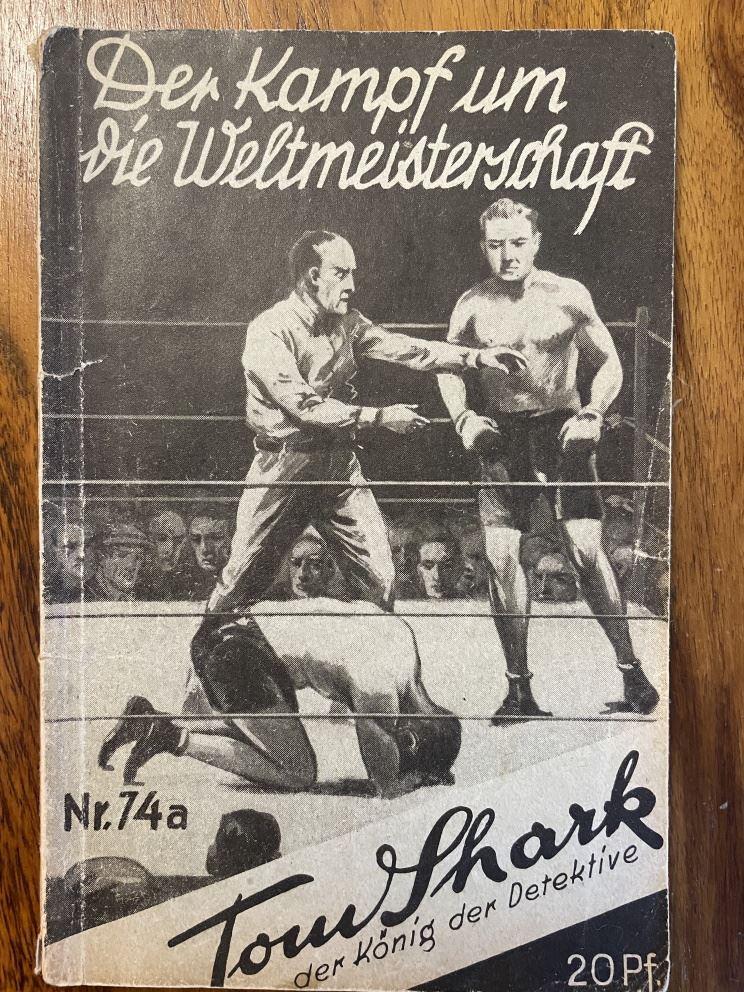 Der Kampf um
die Weltmeisterschaft
Nr. 74a
Tom Shark
der König der Detektive
20 Pf.